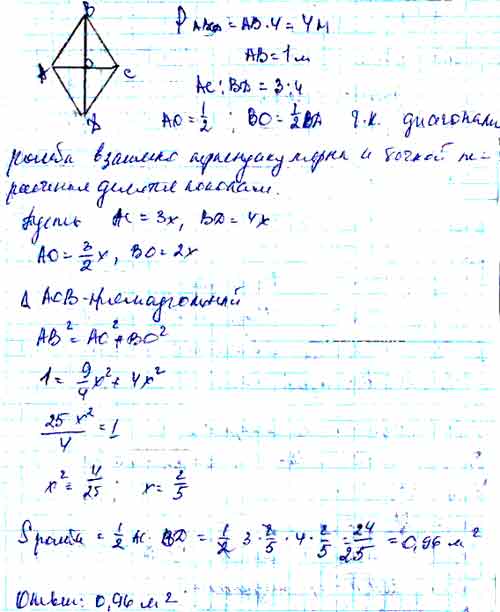 B
A O C
D
P ABCD = AB · 4 = 4 м
AB = 1 м
AC : BD = 3 : 4
AO = 1/2 ; BO = 1/2 BD т.к. диагонали
ромба взаимно перпендикулярны и точкой пе-
ресечения делятся пополам.
Пусть AC = 3x, BD = 4x
AO = 3/2 x, BO = 2x
Δ AOB - прямоугольный
AB² = AO² + BO²
1 = 9/4 x² + 4x²
25x²/4 = 1
x² = 4/25 ; x = 2/5
S ромба = 1/2 AC · BD = 1/2 3 · 2/5 · 4 · 2/5 = 24/25 = 0,96 м²
Ответ: 0,96 м²